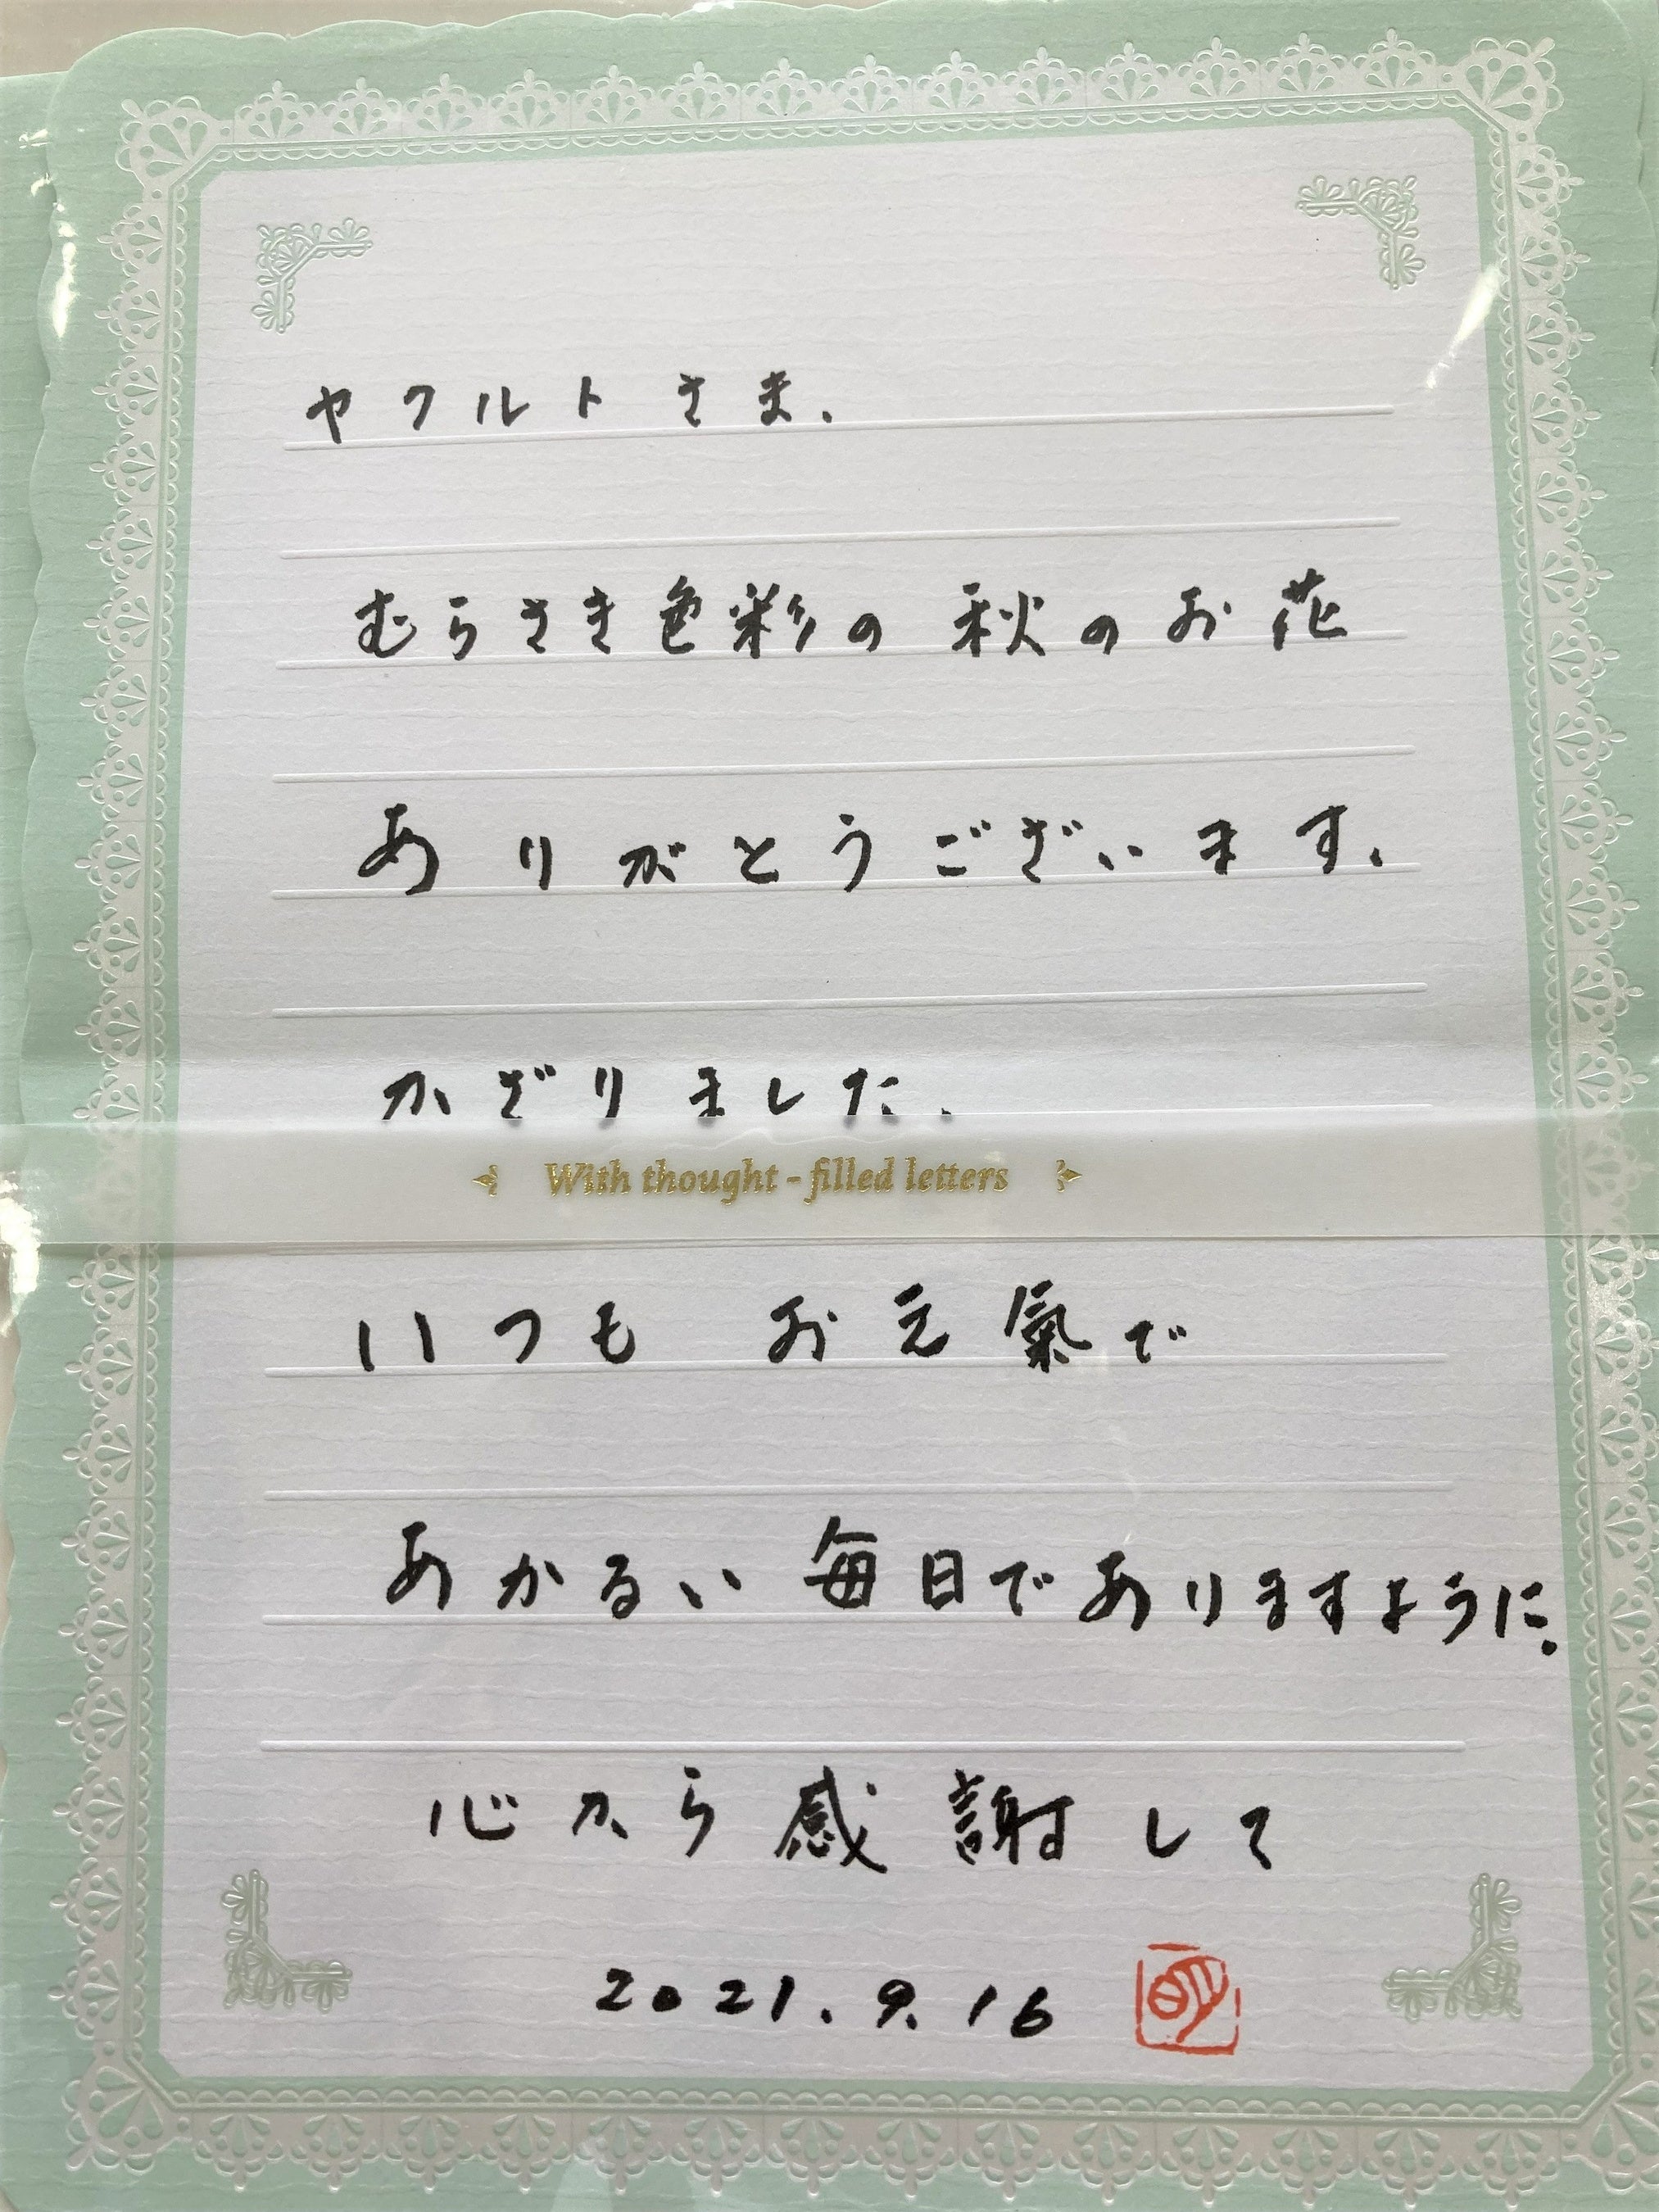 ヤクルトさま.
むらさき色彩の秋のお花
ありがとうございます.
かざりました.
With thought-filled letters
いつも お元氣で
あかるい毎日でありますように.
心から感謝して
2021.9.16